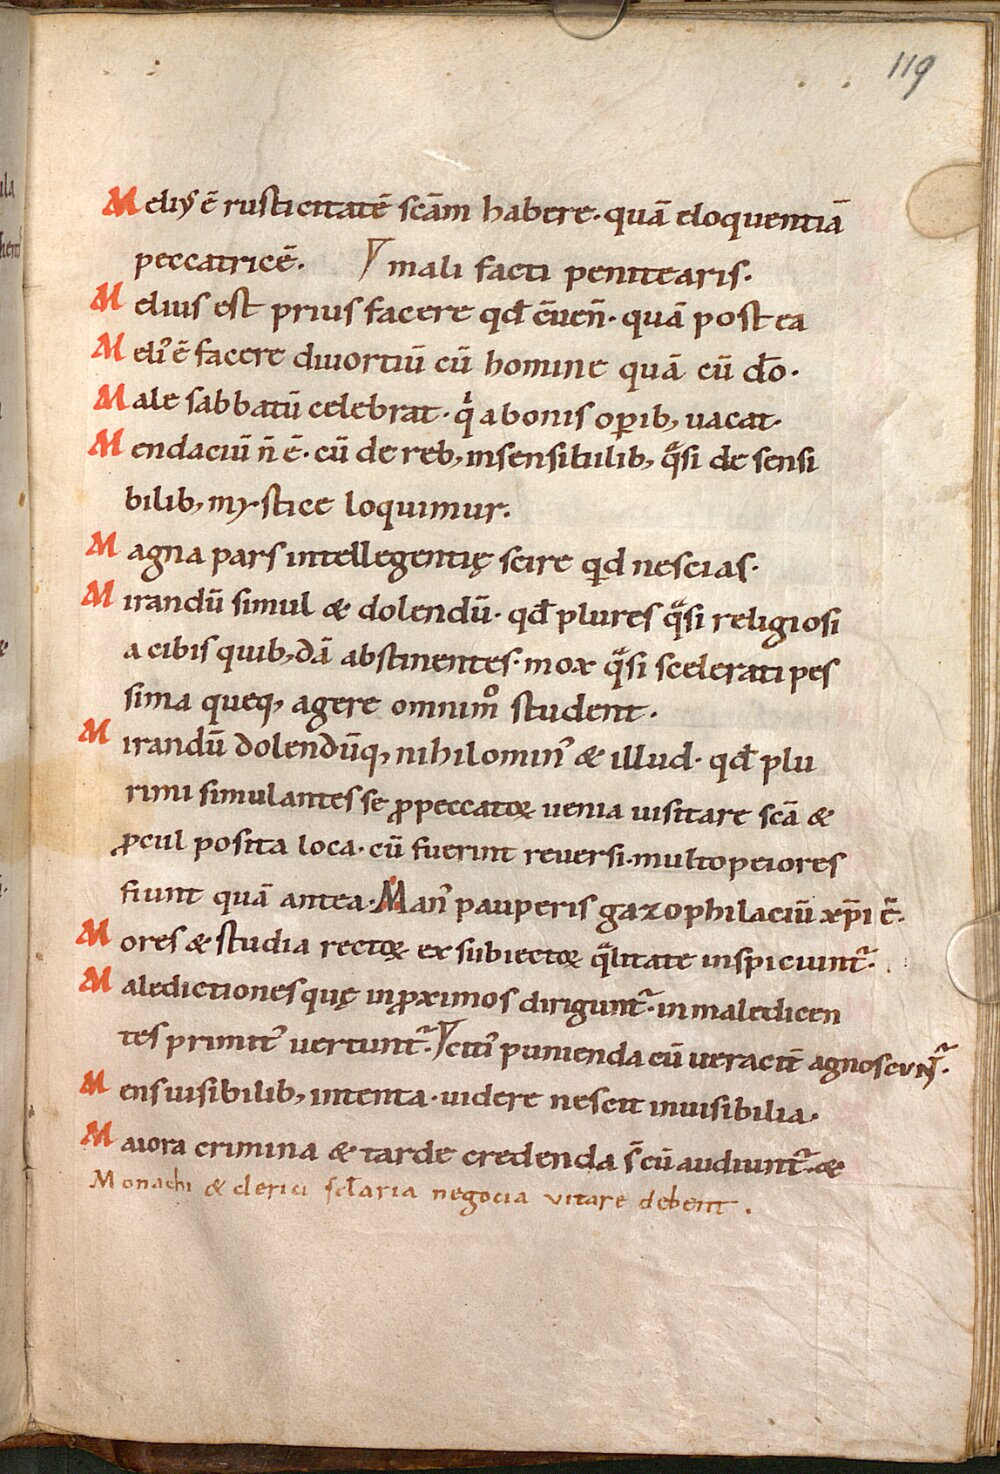 119
Meliꝰ ē rusticitatē scām habere· quā eloquentiā
peccatricē. mali facti penitearis.
Melius est prius facere qđ ēuen̄· quā postea
Meliꝰ ē facere diuortiū cū homine quā cū dō.
Male sabbatū celebrat· qͥ a bonis opib; uacat.
Mendaciū n̄ ē· cū de reb; insensibilib; qͣsi de sensi
bilib; mystice loquimur.
Magna pars intellegentię scire qd nescias.
Mirandū simul & dolendū· qđ plures qͣsi religiosi
a cibis quib;dā abstinentes· mox qͣsi scelerati pes
sima queq; agere omnimͦ student.
Mirandū dolendūq; nihilominꝰ & illud· qđ plu
rimi simulantes se ꝓ peccatoꝝ uenia uisitare scā &
ꝓcul posita loca· cū fuerint reuersi· multo peiores
fiunt quā antea. Manꝰ pauperis gazophilaciū xp̄i ē.
Mores & studia rectoꝝ ex subiectoꝝ qͣlitate inspiciunt᷑.
Maledictiones quę in ꝓximos dirigunt᷑· in maledicen
tes primitꝰ uertunt᷑. citiꝰ punienda cū ueracit̄ agnoscunt᷑.
Mens uisibilib; intenta· uidere nescit inuisibilia.
Maiora crimina & tarde credenda s̄ cū audiunt᷑· &
Monachi & clerici sćlaria negocia vitare debent.